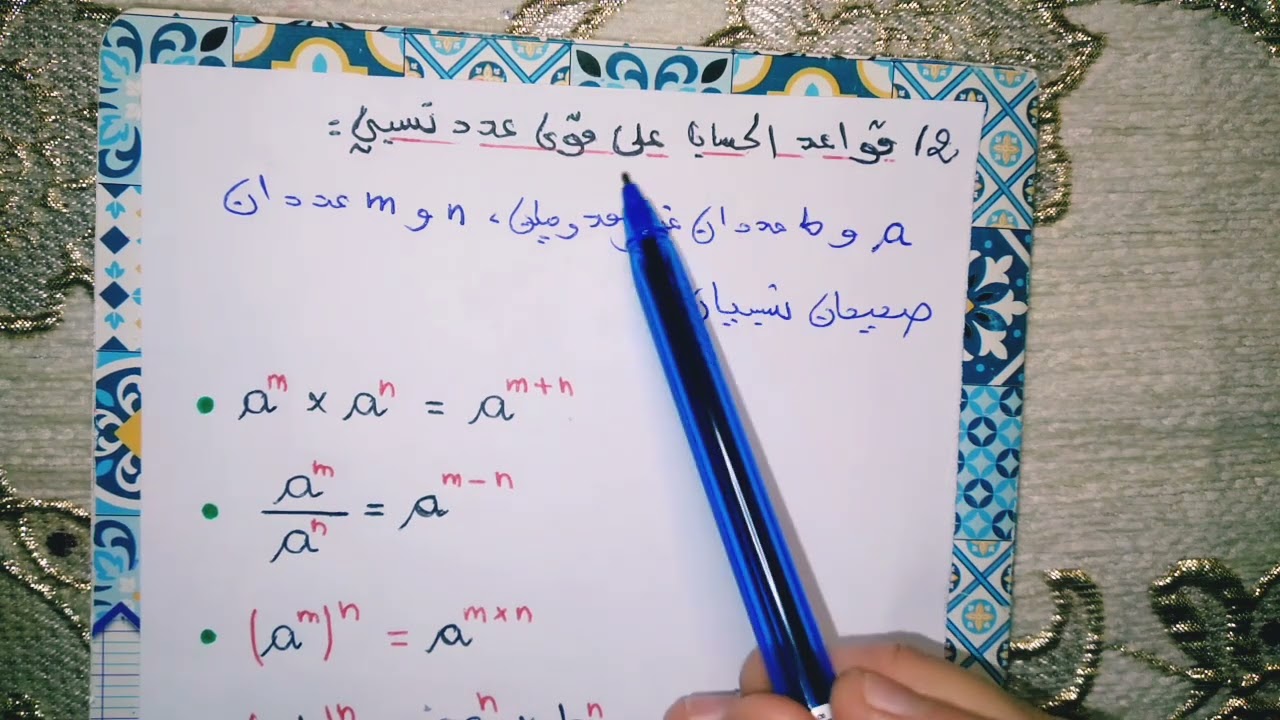 2/ قواعد الحساب على قوى عدد نسبي :
a و b عددان غير معدومين، n و m عددان
صحيحان نسبيان
• a^m × a^n = a^{m+n}
• a^m / a^n = a^{m-n}
• (a^m)^n = a^{m×n}